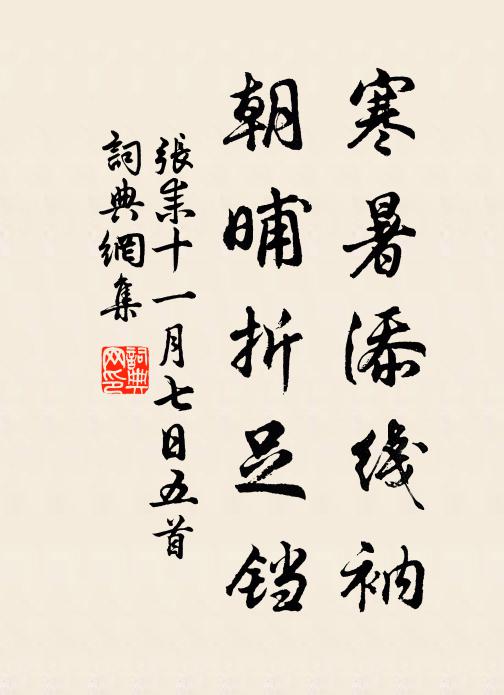 寒暑添线衲
朝晡折足铛
張耒十一月七日五首
詞典網集
詞典网印